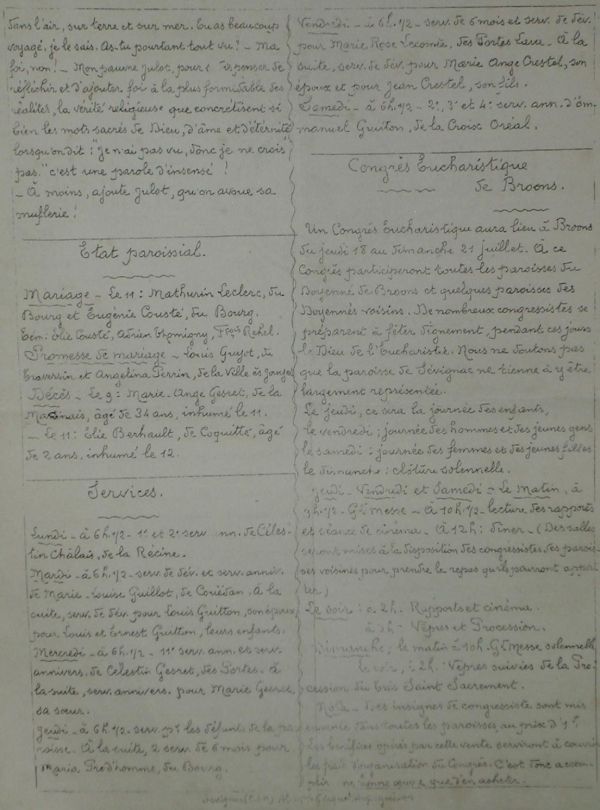 dans l'air, sur terre et sur mer. Tu as beaucoup
voyagé, je le sais. As-tu pourtant tout vu! - Ma
foi, non! - Mon pauvre Julot, pour te dispenser de
réfléchir et d'ajouter foi à la plus formidable des
réalités, la vérité religieuse que concrétisent si
bien les mots sacrés de Dieu, d'âme et d'éternité
lorsqu'on dit: "je n'ai pas vu, donc je ne crois
pas." c'est une parole d'insensé!
- À moins, ajoute Julot, qu'on avoue sa
muflerie!
Etat paroissial.
Mariage - Le 11: Mathurin Leclerc, du
Bourg et Eugénie Cousté, du Bourg.
Tém: Elie Cousté, Adrien Thomigny, Fçois Rehel.
Promesse de mariage - Louis Guyot, de
Traverssin et Angelina Perrin, de la Ville ès
Décès - Le 9: Marie-Ange Gesret, de la
âgé de 34 ans, inhumé le 11.
- Le 11: Elie Berhault, de Coquitté, âgé
de 2 ans, inhumé le 12.
Services.
Lundi - à 6h.1/2 - 1e et 2e serv. ann. de Céles-
tin Châlais, de la Récine.
Mardi - à 6h.1/2 - serv. de dév. et serv. anniv.
de Marie-Louise Guillot, de Coriédan. À la
suite, serv. de dév. pour Louis Guitton, son époux
pour Louis et Ernest Guitton, leurs enfants.
Mercredi - à 6h.1/2 - 1er serv. ann. et serv.
annivers. de Célestin Gesret, des Portes. À
la suite, serv. annivers. pour Marie Gesret,
sa sœur.
Jeudi - à 6h.1/2 - serv. pr les défunts de la pa-
roisse. À la suite, 2 serv. de 6 mois pour
Maria Prod'homme, du Bourg.
Vendredi - à 6h.1/2 - serv. de 6 mois et serv. de dév.
pour Marie Rose Lecomte, des Portes Lava. - À la
suite, serv. de dév. pour Marie Ange Crestel, son
époux et pour Jean Crestel, son fils.
Samedi - à 6h.1/2 - 2e, 3e et 4e serv. ann. d'Em-
manuel Guitton, de la Croix Oréal.
Congrès Eucharistique
de Broons.
Un Congrès Eucharistique aura lieu à Broons
du jeudi 18 au dimanche 21 juillet. À ce
Congrès participeront toutes les paroisses du
Doyenné de Broons et quelques paroisses des
Doyennés voisins. De nombreux congressistes se
préparent à fêter dignement, pendant ces jours
le Dieu de l'Eucharistie. Nous ne doutons pas
que la paroisse de Sévignac ne tienne à y être
largement représentée.
Le jeudi, ce sera la journée des enfants,
le vendredi; journée des hommes et des jeunes gens
le samedi: journée des femmes et des jeunes filles
le dimanche: clôture solennelle.
Jeudi - Vendredi et Samedi - Le Matin, à
9h.1/2 - Gd Messe - À 10h.1/2 - lecture des rapports
et séance de cinéma. - À 12h: dîner - (Des salles
seront mises à la disposition des congressistes des parois-
ses voisines pour prendre le repas qu'ils pourront appor-
ter)
Le Soir: à 2h. - Rapports et cinéma.
à 3h - Vêpres et Procession.
Dimanche; le matin à 10h. Gd Messe solennelle
le soir, à 2h: Vêpres suivies de la Pro-
cession du très Saint Sacrement.
Nota - Des insignes de congressiste sont mis
en vente dans toutes les paroisses au prix d'1f.
Les bénéfices opérés par cette vente serviront à couvrir
les frais d'organisation du Congrès. C'est donc accom-
plir une bonne œuvre que d'en acheter.